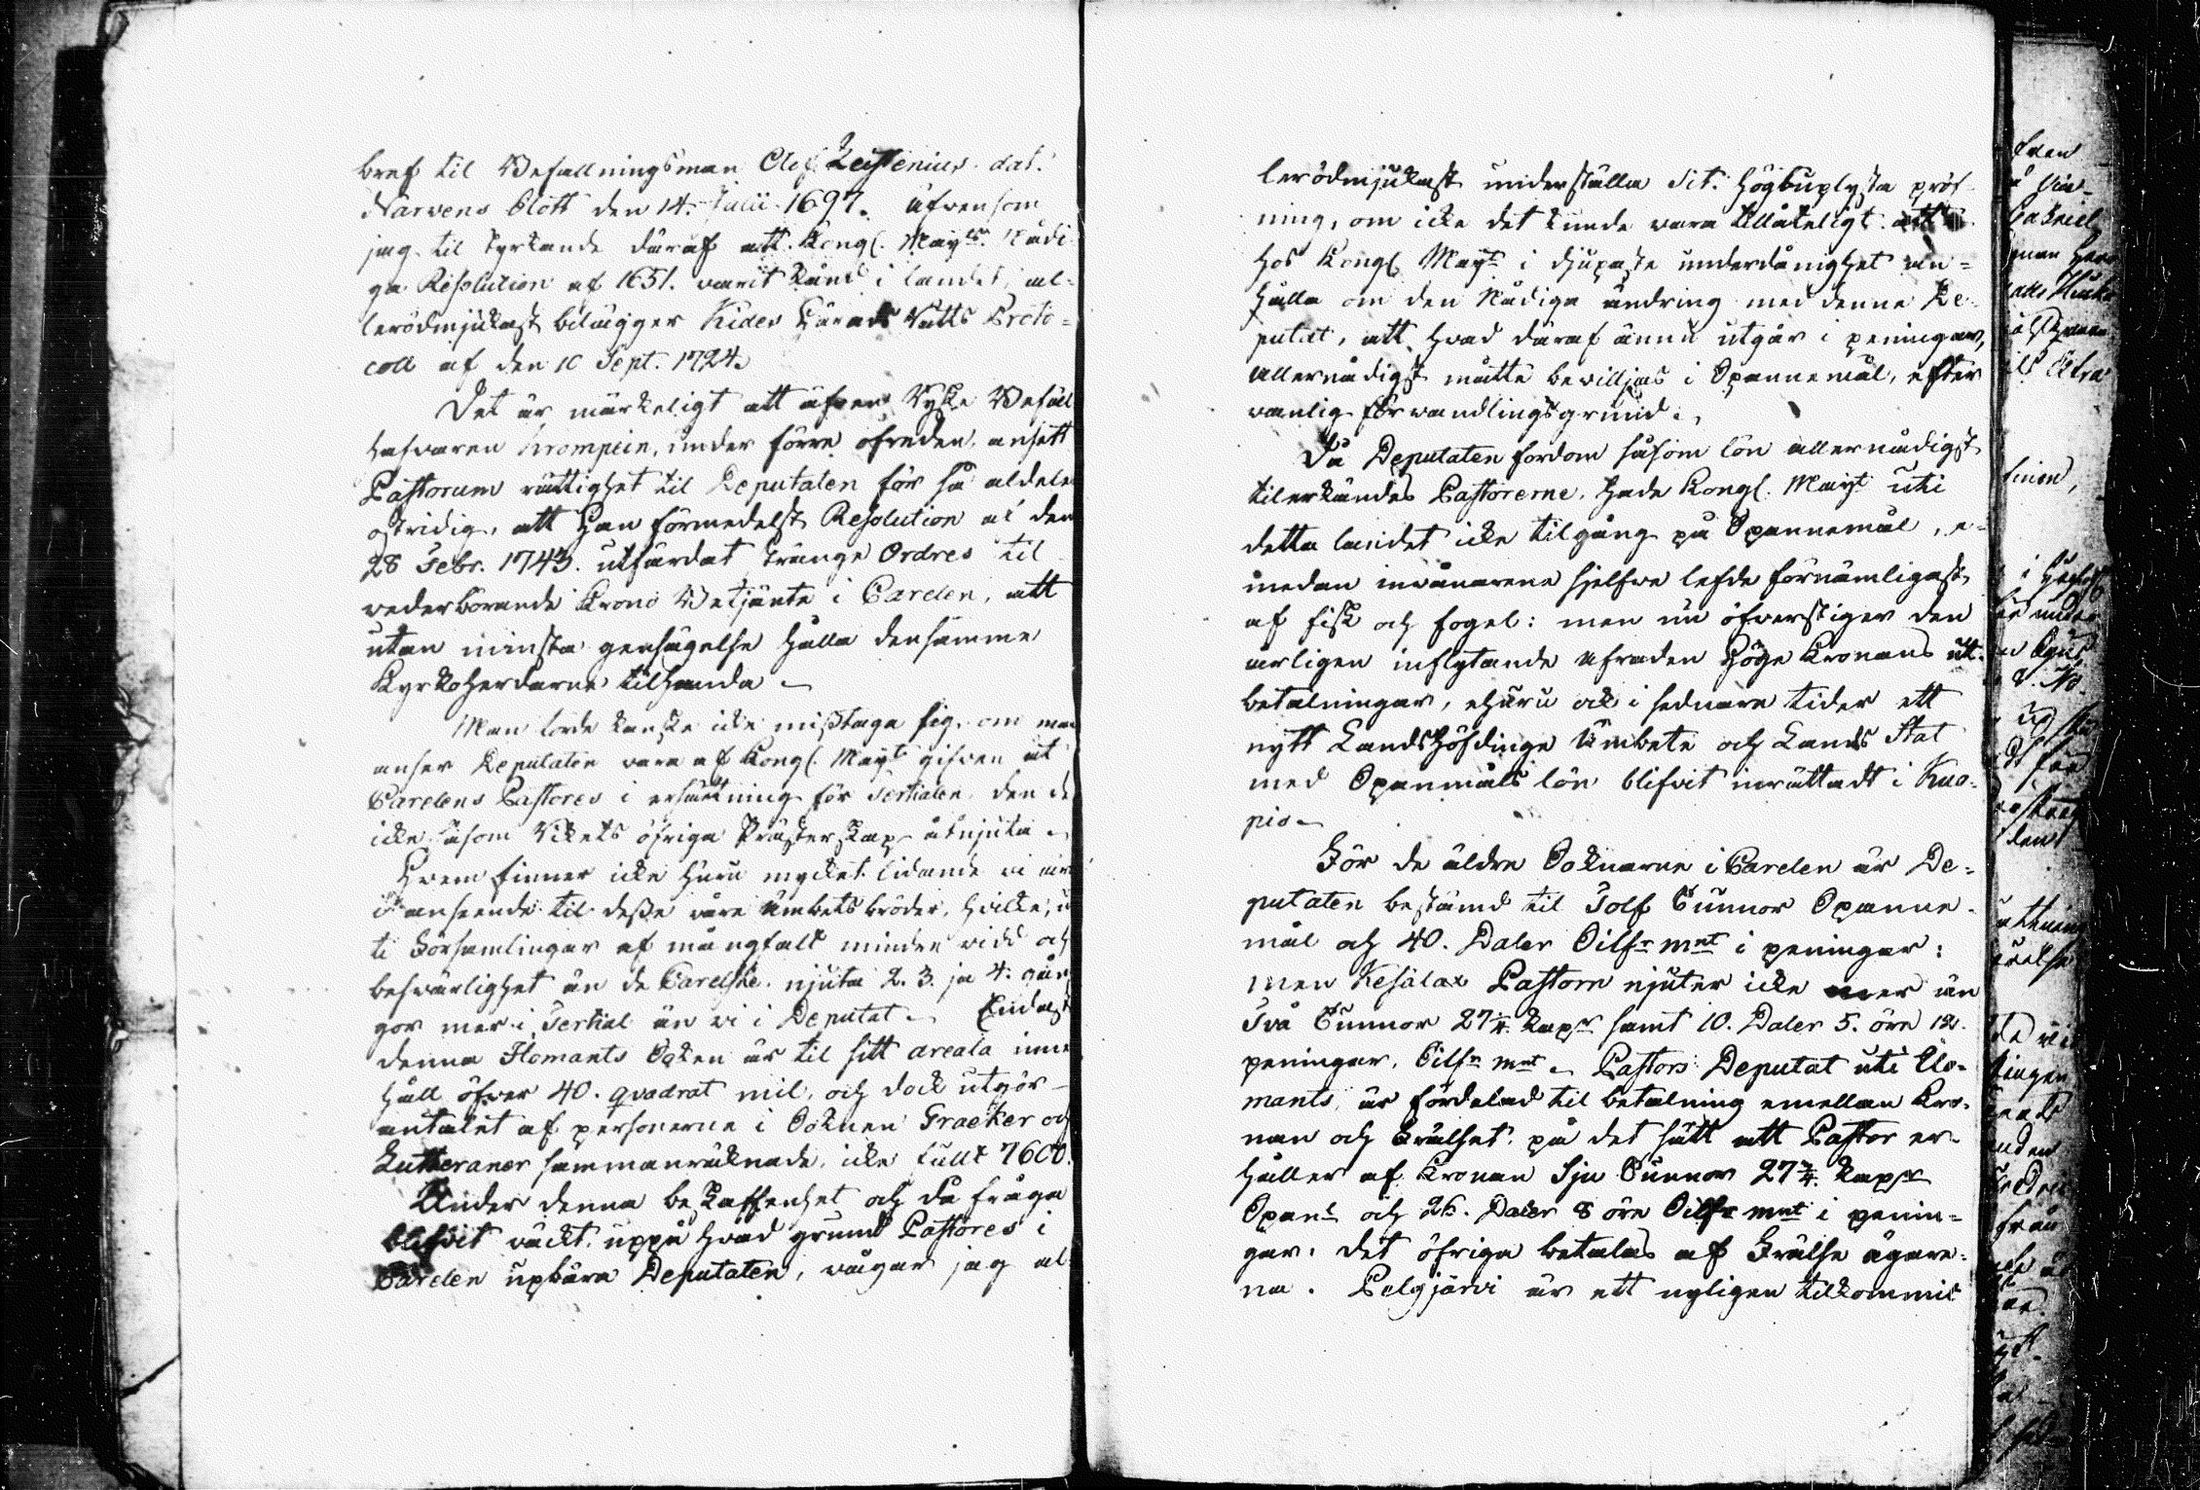 bref til Befallningsman Olof Keistenius. dat.
Narvens Slott den 14. Julii 1697. äfvensom
jag til styrkande däraf att Kongl. Mayts. Nådi-
ga Resolution af 1651. varit känd i landet, al-
lerödmjukast bilägger Kides Härads Rätts Proto-
coll af den 10 Sept. 1724.
Det är märkeligt att äfven Ryske Befäl-
hafvaren Krompein, under förra ofreden, ansett
Pastorum rättighet til Deputaten för så aldeles
ostridig, att han förmedelst Resolution af den
28 Febr. 1743. utfärdat stränge Ordres til
vederbörande Krono Betjänte i Carelen, att
utan minsta gensägelse hålla densamme
Kyrkoherdarne tilhanda.
Man torde kanske icke misstaga sig, om man
anser Deputaten vara af Kongl. Mayt gifven åt
Carelens Pastores i ersättning för Tertialen, den de
icke såsom Rikets öfriga Prästerskap åtnjuta.
Hvem finner icke huru mycket lidande vi äro
i anseende til desse våra Ämbetsbröder, hvilke, u-
ti Församlingar af mångfalt mindre vidd och
besvärlighet än de Carelske, njuta 2. 3. ja 4. gån-
gor mer i Tertial än vi i Deputat. Endast
denna Ilomants Soken är til sitt areala inne-
håll öfver 40. quadrat mil, och dock utgör
antalet af personerne i Soknen Graeker och
Lutheraner sammanräknade, icke fullt 7600.
Under denna beskaffenhet och då fråga
blifvit väckt, uppå hvad grund Pastores i
Carelen upbära Deputaten, vågar jag al-
lerödmjukast underställa Dit. Högbuplysta pröf-
ning, om icke det kunde vara tillåteligt att
hos Kongl. Mayt i djupaste underdånighet an-
hålla om den Nådiga ändring med denne De-
putat, att hvad däraf ännu utgår i peningar,
allernådigst måtte beviljas i Spannemål, efter
vanlig förvandlingsgrund.
Då Deputaten fordom såsom lön allernådigst
tilerkändes Pastorerne, hade Kongl. Mayt uti
detta landet icke tilgång på Spannemål, e-
medan invånarene sjelfve lefde förnämligast
af fisk och fogel: men nu öfverstiger den
årligen inflytande afraden Höga Kronans ut-
betalningar, ehuru ock i sednare tider ett
nytt Landshöfdinge Ämbete och Lands Stat
med Spanmåls lön blifvit inrättadt i Kuo-
pio.
För de äldre Soknarne i Carelen är De-
putaten bestämd til Tolf Tunnor Spanne-
mål och 40. Daler Silfr mnt i peningar:
men Kesälax Pastorn njuter icke mer än
Två Tunnor 27 7/4. Kappr samt 10. Daler 5. öre 12.
peningar, Silfr mnt. Pastors Deputat uti Ilo-
mants, är fördelad til betalning emellan Kro-
nan och Frälset, på det sätt att Pastor er-
håller af Kronan Sju Tunnor 27 7/4. Kappr
Span:l och 26. Daler 8 öre Silfr mnt i penin-
gar: det öfriga betalas af Frälse ägare-
na. Pelgjärvi är ett nyligen tilkommit